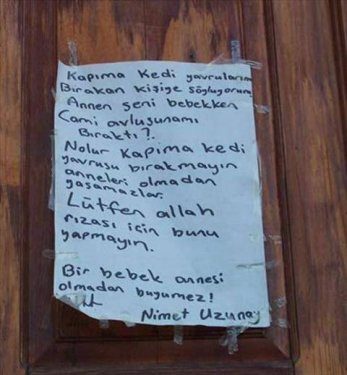 Kapıma Kedi yavrularını
Bırakan kişiye söylüyorum
Annen seni bebekken
Cami avlusunamı
Bıraktı?.
Nolur Kapıma kedi
yavrusu bırakmayın
anneleri olmadan
yaşamazlar.
Lütfen allah
rızası için bunu
yapmayın.
Bir bebek annesi
olmadan büyümez!
Nimet Uzunay